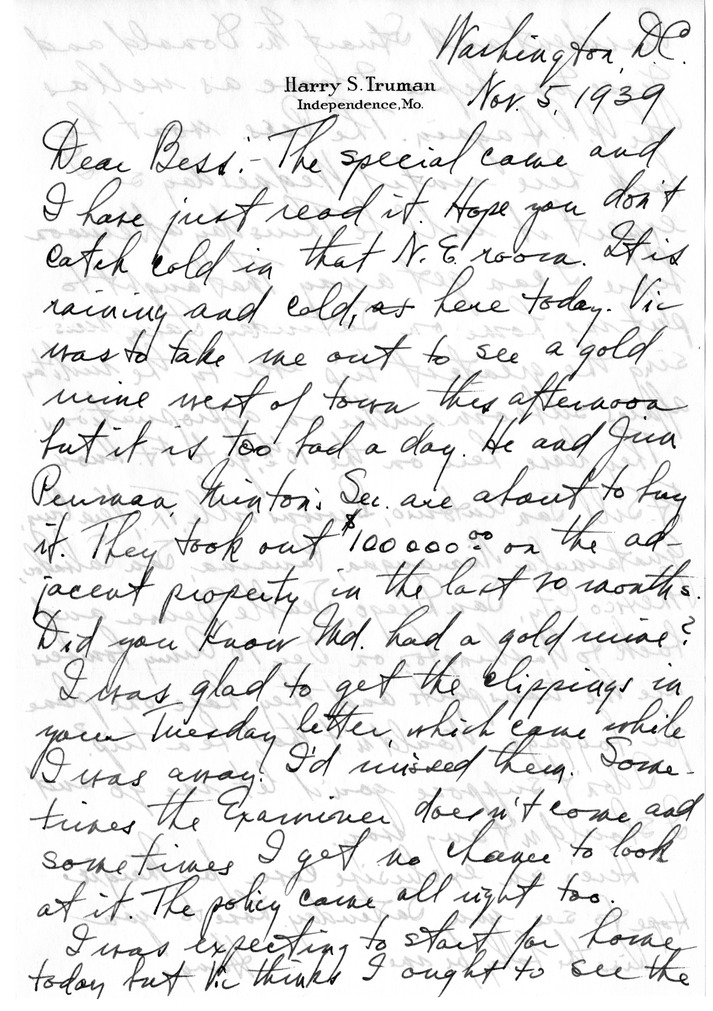 Washington, D.C.
Harry S. Truman
Independence, Mo.
Nov. 5, 1939
Dear Bess:- The special came and
I have just read it. Hope you don't
catch cold in that N.E. room. It is
raining and cold, as here today. Vic
was to take me out to see a gold
mine west of town this afternoon
but it is too bad a day. He and Jim
Penman, Minton's Sec. are about to buy
it. They took out $100000.00 on the ad-
jacent property in the last 20 months.
Did you know Md. had a gold mine?
I was glad to get the clippings in
your Tuesday letter, which came while
I was away. I'd missed them. Some-
times the Examiner doesn't come and
sometimes I get no chance to look
at it. The policy came all right too.
I was expecting to start for home
today but Vic thinks I ought to see the